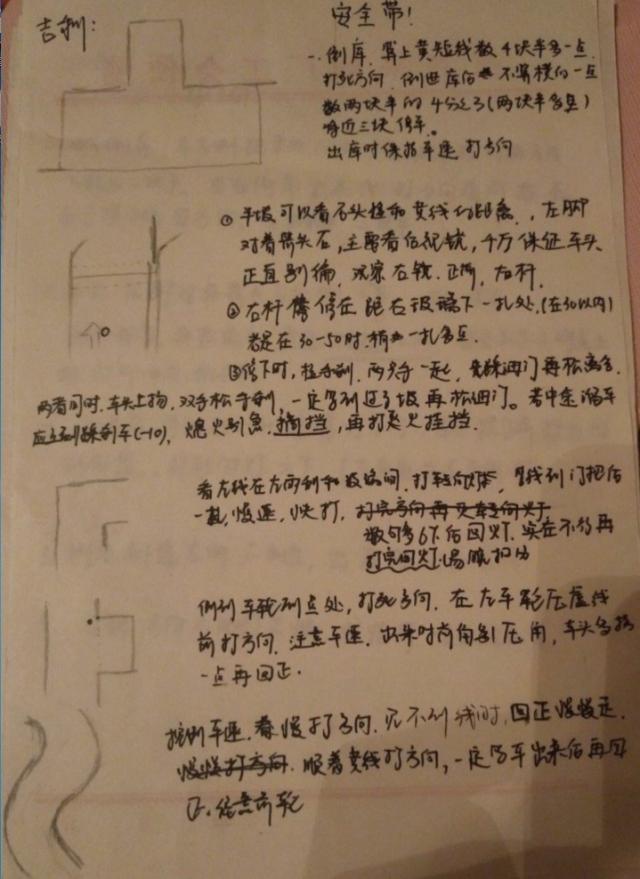 吉利:
安全带!
一. 倒库. 算上黄短线数4块半多一点
打死方向. 倒进库后 不算横的一点
数两块半的4分之3(两块半多点)
将近三块停车。
出库时保持车速 打方向
① 半坡可以看石头柱和黄线的距离. 左脚
对着箭头右, 主要看后视镜, 千万保证车头
正直别偏, 观察右镜. 正前, 右杆.
② 右杆需停在距右玻璃下一扎处. (在30以内)
若是在30-50时. 稍 一扎多点.
③ 停下时, 拉手刹. 两分一起, 先踩油门再松离合.
两者同时. 车头上抬. 双手松手刹, 一定等到过了坡再松油门。若中途溜车
应立刻踩刹车(-10), 熄火别急. 摘挡, 再打点火挂挡.
看左线在左雨刮和 间. 打转向灯, 线到门把后
慢速. 快打. 打完方向再
数 后回灯. 实在不行再
打完回灯.
倒到车轮到点处, 打死方向. 在左车轮压虚线
前打方向. 注意车速. 出来时前角别压角, 车头多
一点再回正.
控制车速. 慢打方向. 看不到线时. 回正慢慢走.
慢慢打方向. 顺着黄线打方向, 一定等车出来后再回
正. 注意前轮